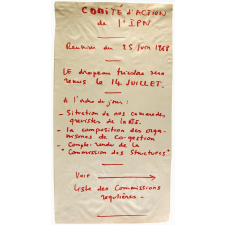 COMITÉ D'ACTION
de l'IPN
Réunion du 25 Juin 1968
LE drapeau tricolore sera
remis le 14 JUILLET.
A l'ordre du jour :
- Situation de nos camarades,
grévistes de la RTS.
- la composition des orga-
nismes de Co-gestion
- Compte-rendu de la
"Commission des Structures"
Voir
liste des Commissions
régulières -